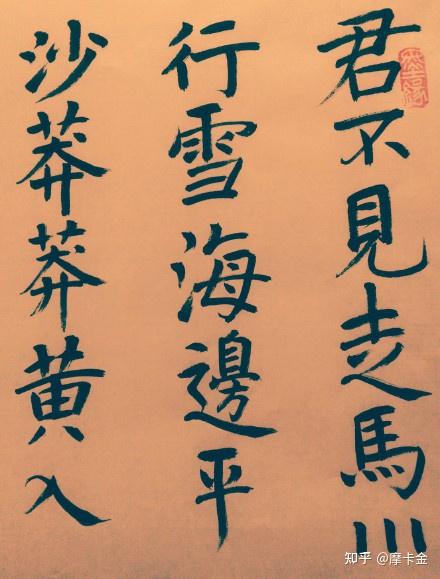 君不見走馬川
行雪海邊平
沙莽莽黄入
知乎 @摩卡金